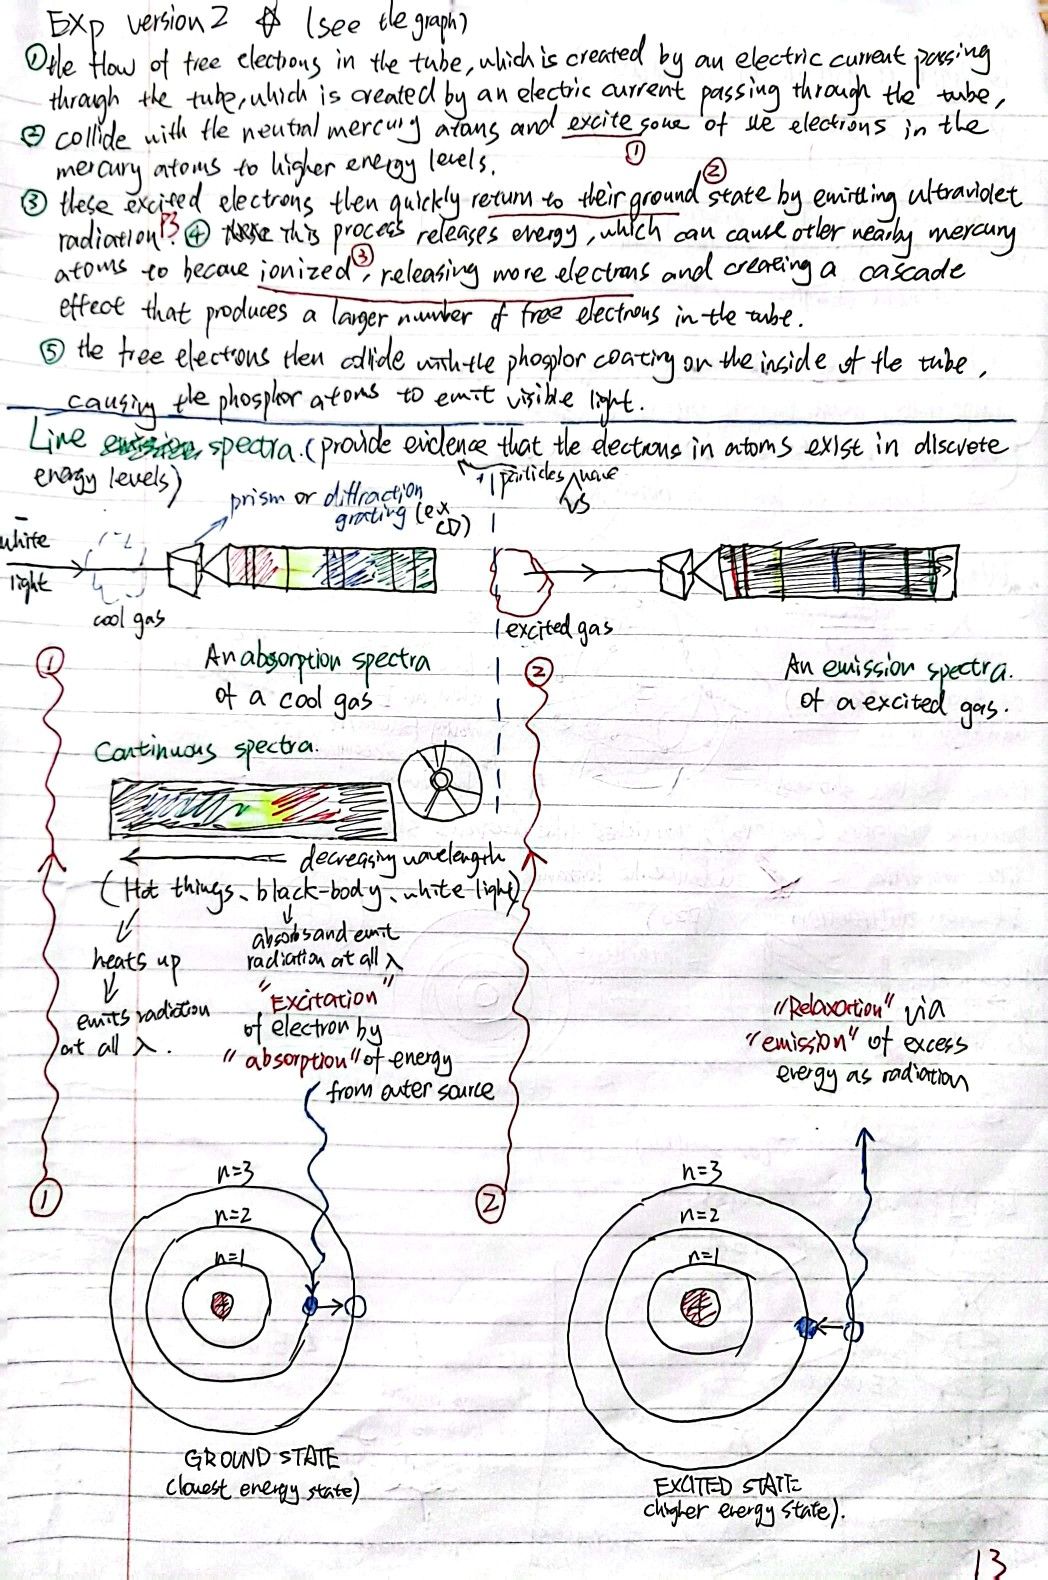 Exp version 2 ☆ (see the graph)
① the flow of free electrons in the tube, which is created by an electric current passing
through the tube, which is created by an electric current passing through the tube,
② collide with the neutral mercury atoms and excite some of the electrons in the
mercury atoms to higher energy levels.
①
②
③ these excited electrons then quickly return to their ground state by emitting ultraviolet
radiation. ④ this process releases energy, which can cause other nearby mercury
③
atoms to become ionized, releasing more electrons and creating a cascade
effect that produces a larger number of free electrons in the tube.
⑤ the free electrons then collide with the phosphor coating on the inside of the tube,
causing the phosphor atoms to emit visible light.
Line spectra. (provide evidence that the electrons in atoms exist in discrete
energy levels)
particles wave
vs
prism or diffraction
grating (ex
CD)
white
light
cool gas
excited gas
①
An absorption spectra
of a cool gas
②
An emission spectra.
of a excited gas.
Continuous spectra.
decreasing wavelength
(Hot things、black-body、white light)
heats up
emits radiation
at all λ.
absorbs and emit
radiation at all λ
"Excitation"
of electron by
"absorption" of energy
from outer source
"Relaxortion" via
"emission" of excess
energy as radiation
①
n=3
n=2
n=1
+
GROUND STATE
(lowest energy state)
②
n=3
n=2
n=1
+
EXCITED STATE
(higher energy state).
13